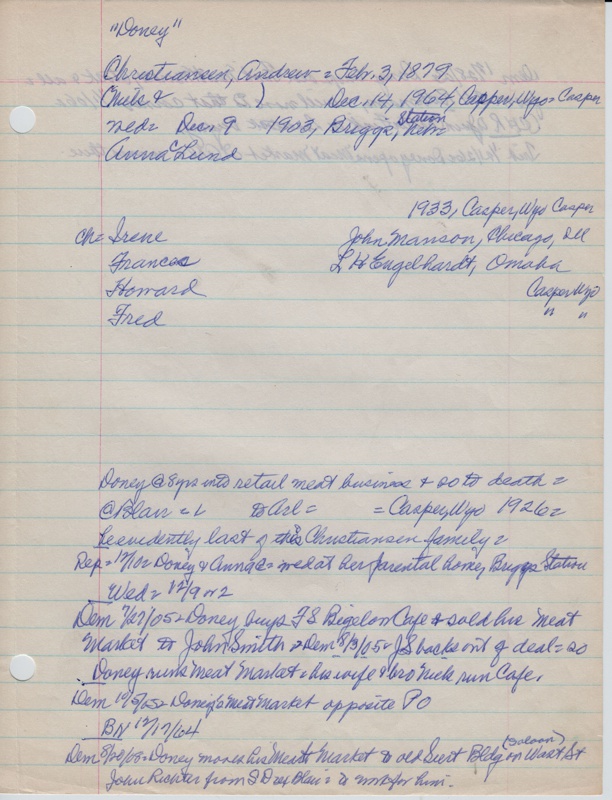 "Doney"
Christiansen, Andrew = Feb. 3, 1879
Chris & ) Dec. 14, 1964, Casper, Wyo = Casper
wed = Dec. 9 1903, Briggs, Station Nebr
Anna C Lund
1933, Casper, Wyo Casper
ch = Irene John Manson, Chicago, Ill
Frances L H Engelhardt, Omaha
Howard Casper Wyo
Fred " "
Doney @ 8 yrs into retail meat business & so to death =
@ Blair = to Arl = = Casper, Wyo 1926 =
evidently last of this Christiansen family =
Rep = Doney & Anna C = wed at her parental home, Briggs Station
Wed = 12/9
Dem 7/27/05 = Doney buys F S Bigelow Cafe & sold his Meat
Market to John Smith = Dem 8/3/05 = J S backs out of deal = so
Doney runs Meat Market = his wife & bro Nick run Cafe.
Dem = Doney's Meat Market opposite PO
BN 12/17/64
Dem = Doney moves his Meat Market to old Bldg (Saloon) on West St
John Richter from Blair = to work for him.